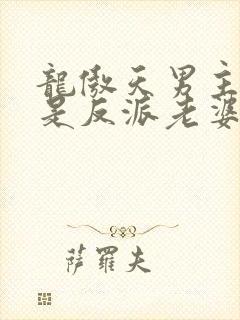 龍傲天男主
是反派老婆
萨羅夫